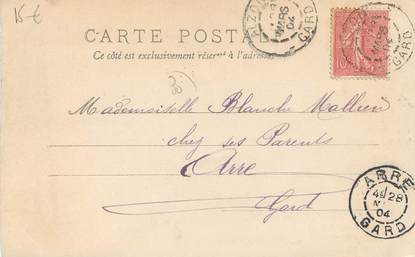 15 €
CARTE POSTALE
Ce côté est exclusivement réservé à l'adresse
MARS
04
GARD
GARD
10
Mademoiselle Blanche Mallien
chez ses Parents
Arre
Gard
ARRE
28
04
GARD